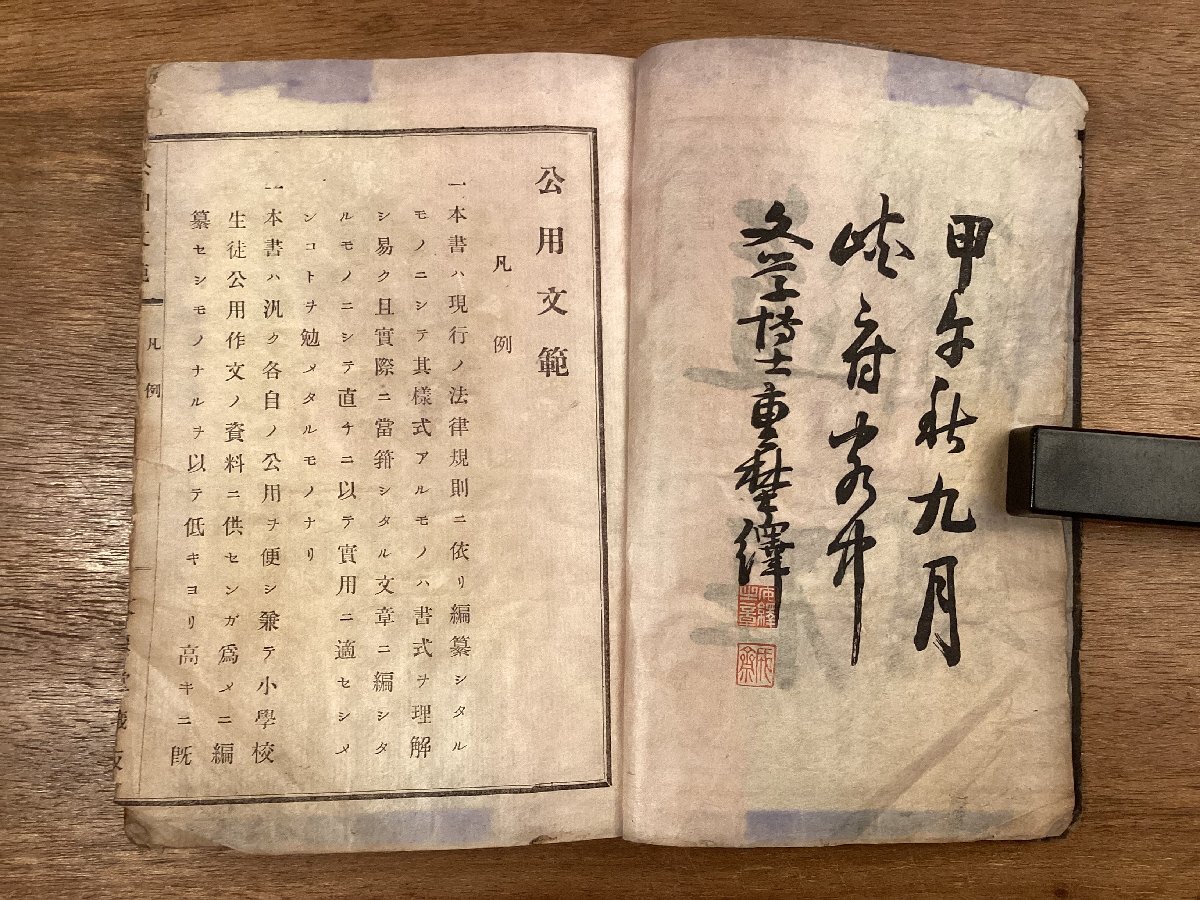 甲午秋九月
峡府客中
文学博士重埜繹
成齋
公用文範
凡例
一本書ハ現行ノ法律規則ニ依リ編纂シタル
モノニシテ其様式アルモノハ書式ヲ理解
シ易ク且實際ニ當箝シタル文章ニ編シタ
ルモノニシテ直チニ以テ實用ニ適セシメ
ンコトヲ勉メタルモノナリ
一本書ハ汎ク各自ノ公用ヲ便シ兼テ小學校
生徒公用作文ノ資料ニ供センガ爲メニ編
纂セシモノナルヲ以テ低キヨリ高キニ既
凡例